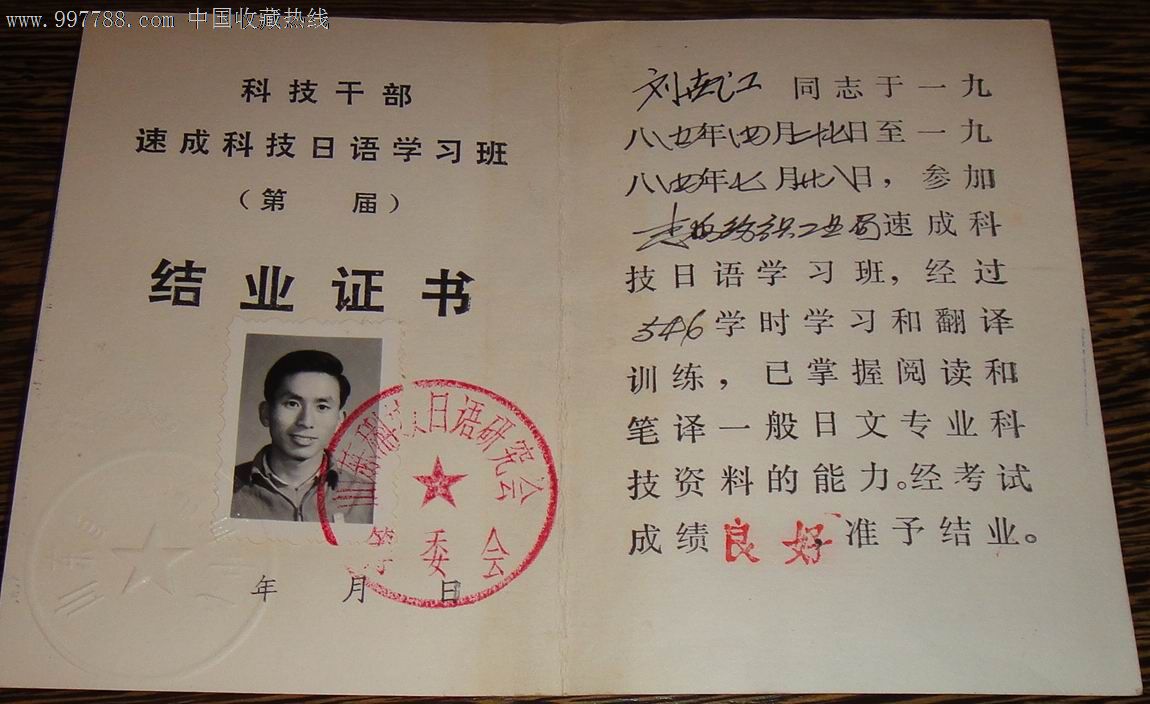 www.997788.com 中国收藏热线
科技干部
速成科技日语学习班
（第 届）
结业证书
日语研究会
筹委会
年 月 日
刘 江 同志于一九
八五年四月 日至一九
八五年七月廿八日，参加
纺织工业局速成科
技日语学习班，经过
546学时学习和翻译
训练，已掌握阅读和
笔译一般日文专业科
技资料的能力。经考试
成绩良好准予结业。